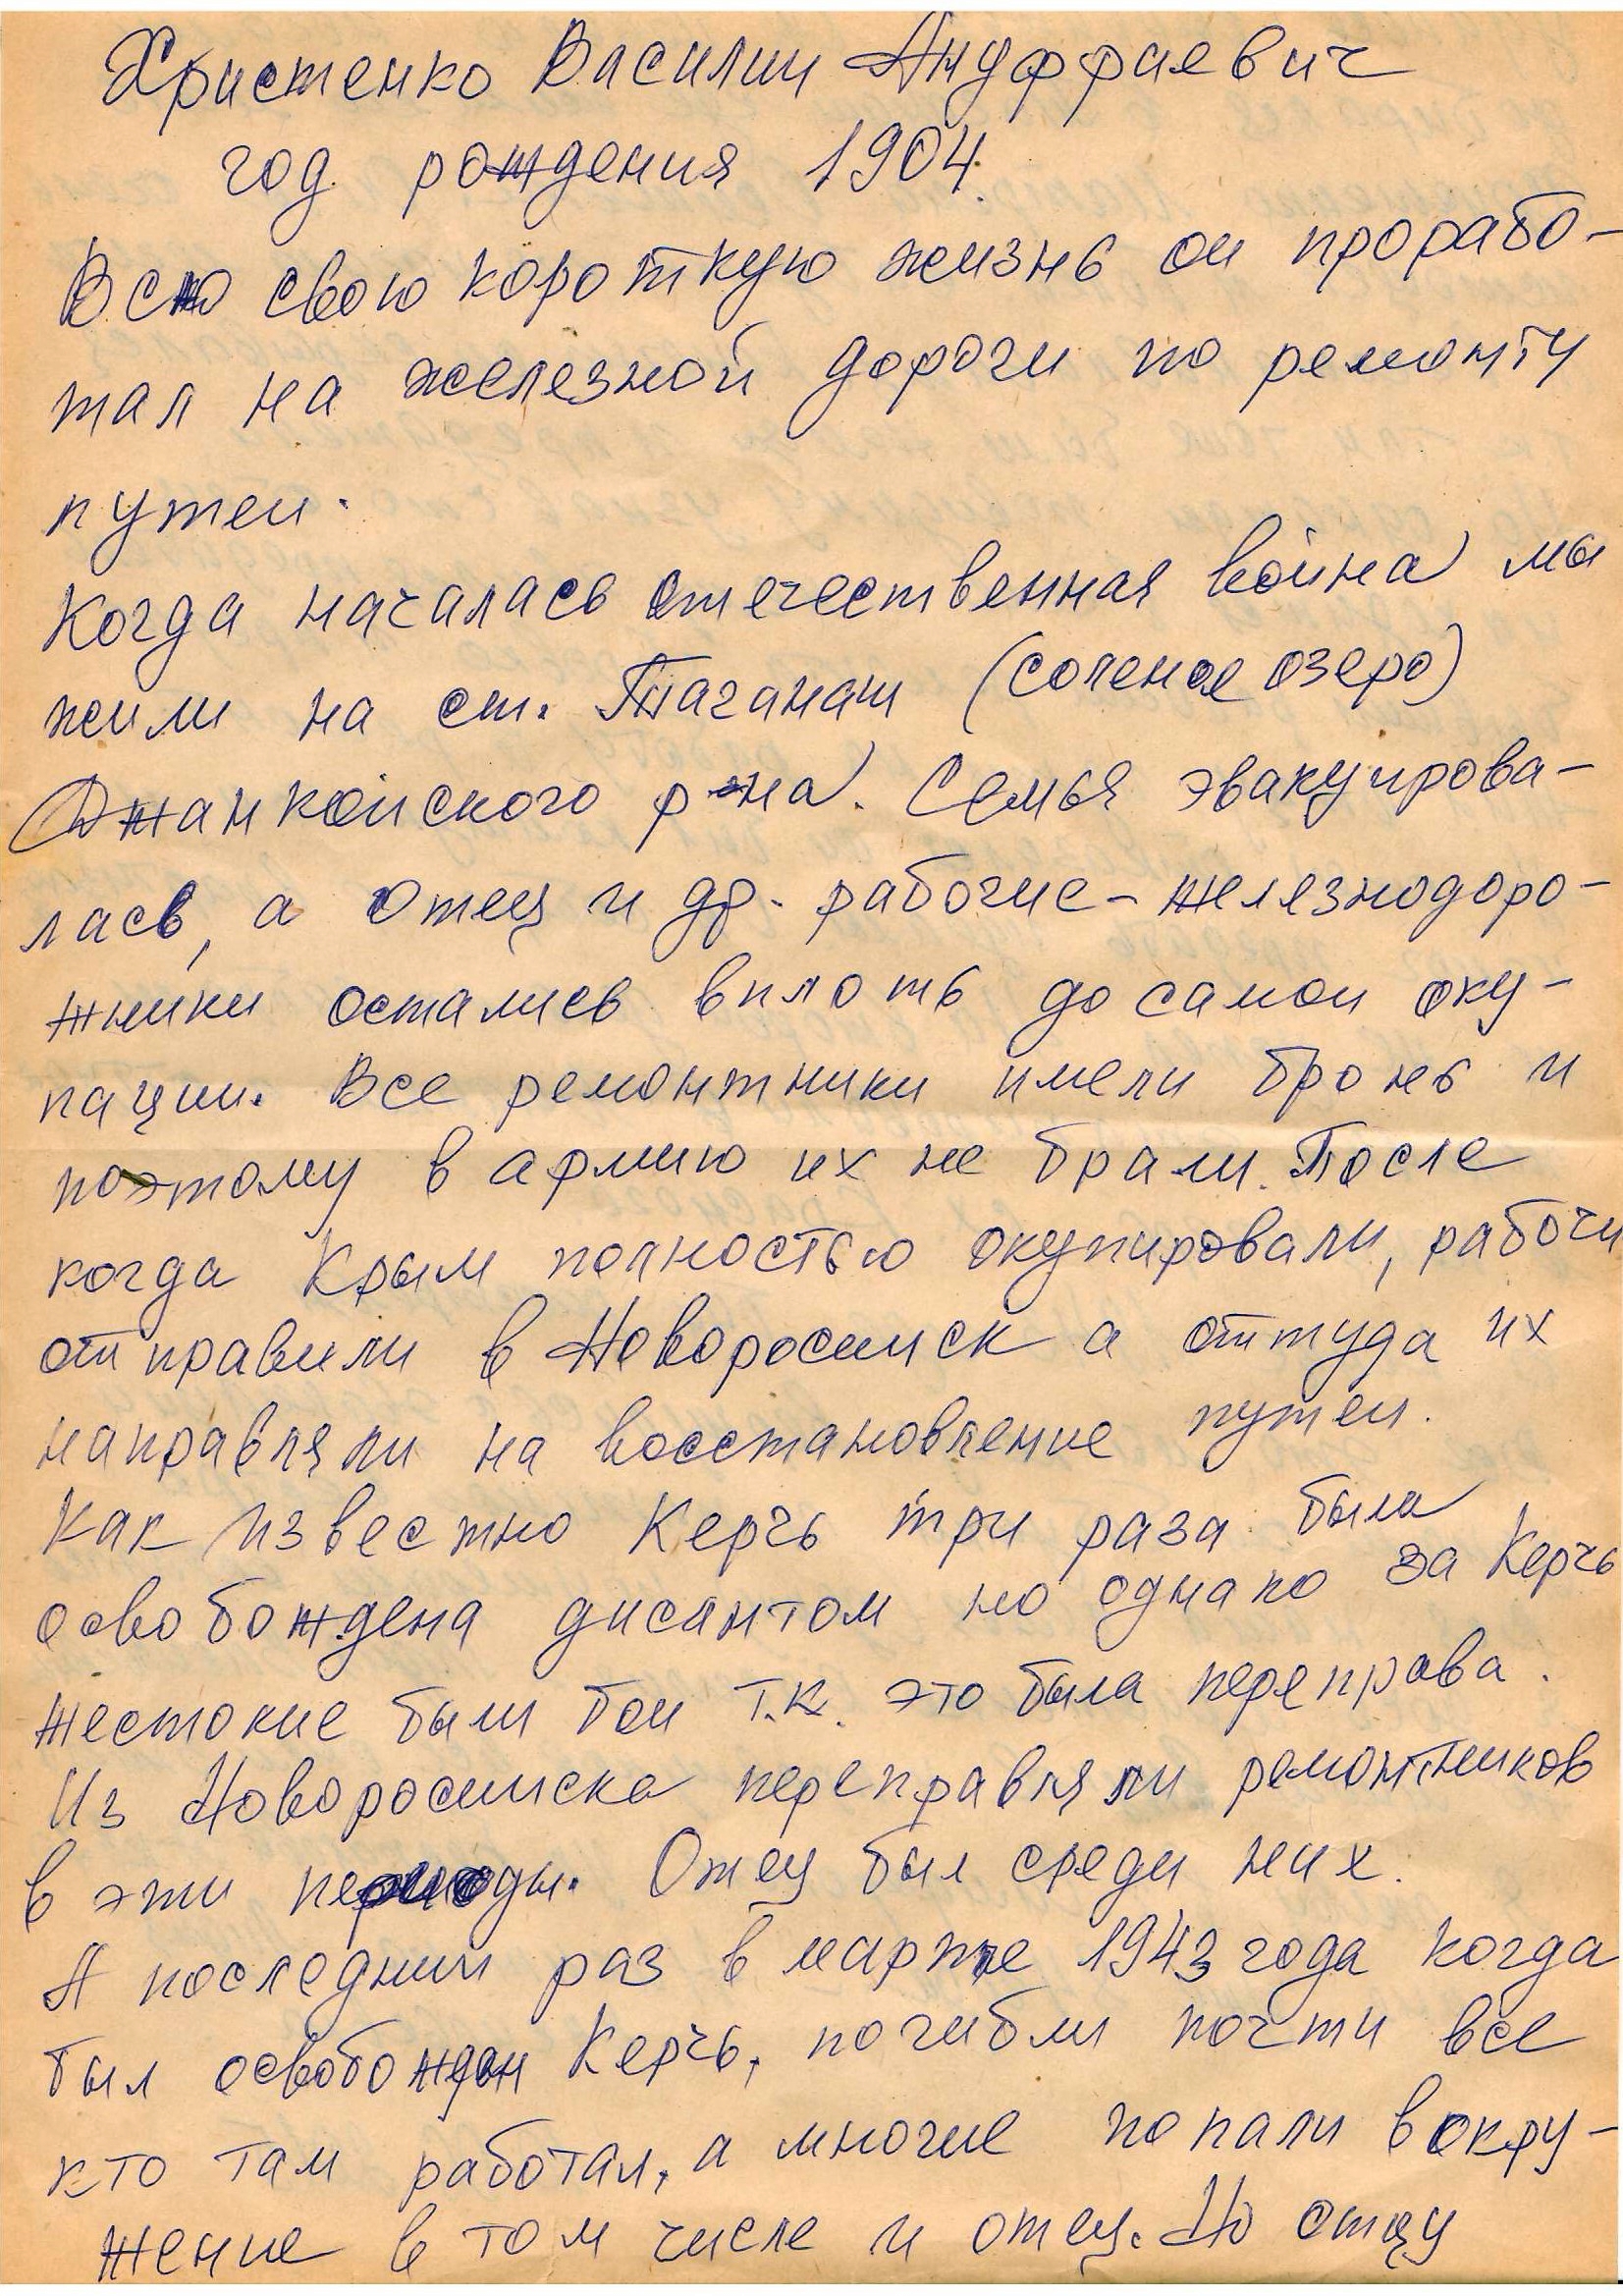 Христенко Василии Ануффиевич
год рождения 1904.
Всю свою короткую жизнь он прорабо-
тал на железной дороги по ремонту
путеи.
Когда началась отечественная война мы
жили на ст. Таганаш (соленое озеро)
Джанкойского р-на. Семья эвакуирова-
лась, а отец и др. рабочие-железнодоро-
жники остались вплоть до самои оку-
пации. Все ремонтники имели бронь и
поэтому в армию их не брали. После
когда Крым полностью окупировали, рабочи
отправили в Новоросииск а оттуда их
направляли на восстановление путеи.
Как известно Керчь три раза была
освобождена дисантом но однако за Керчь
жестокие были бои т.к. это была переправа.
Из Новоросииска переправляли ремонтников
в эти периоды. Отец был среди них.
А последнии раз в марте 1943 года когда
был освобожден Керчь, погибли почти все
кто там работал, а многие попали в окру-
жение в том числе и отец. Но отцу